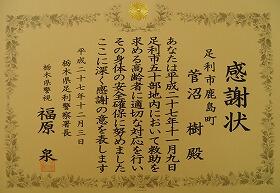 感謝状
足利市鹿島町
菅沼 樹 殿
あなたは平成二十七年十一月九日
足利市五十部地内において救助を
求める高齢者に適切な対応を行い
その身体の安全確保に努めました
ここに深く感謝の意を表します
平成二十七年十二月三日
栃木県足利警察署長
栃木県警視
福原 泉